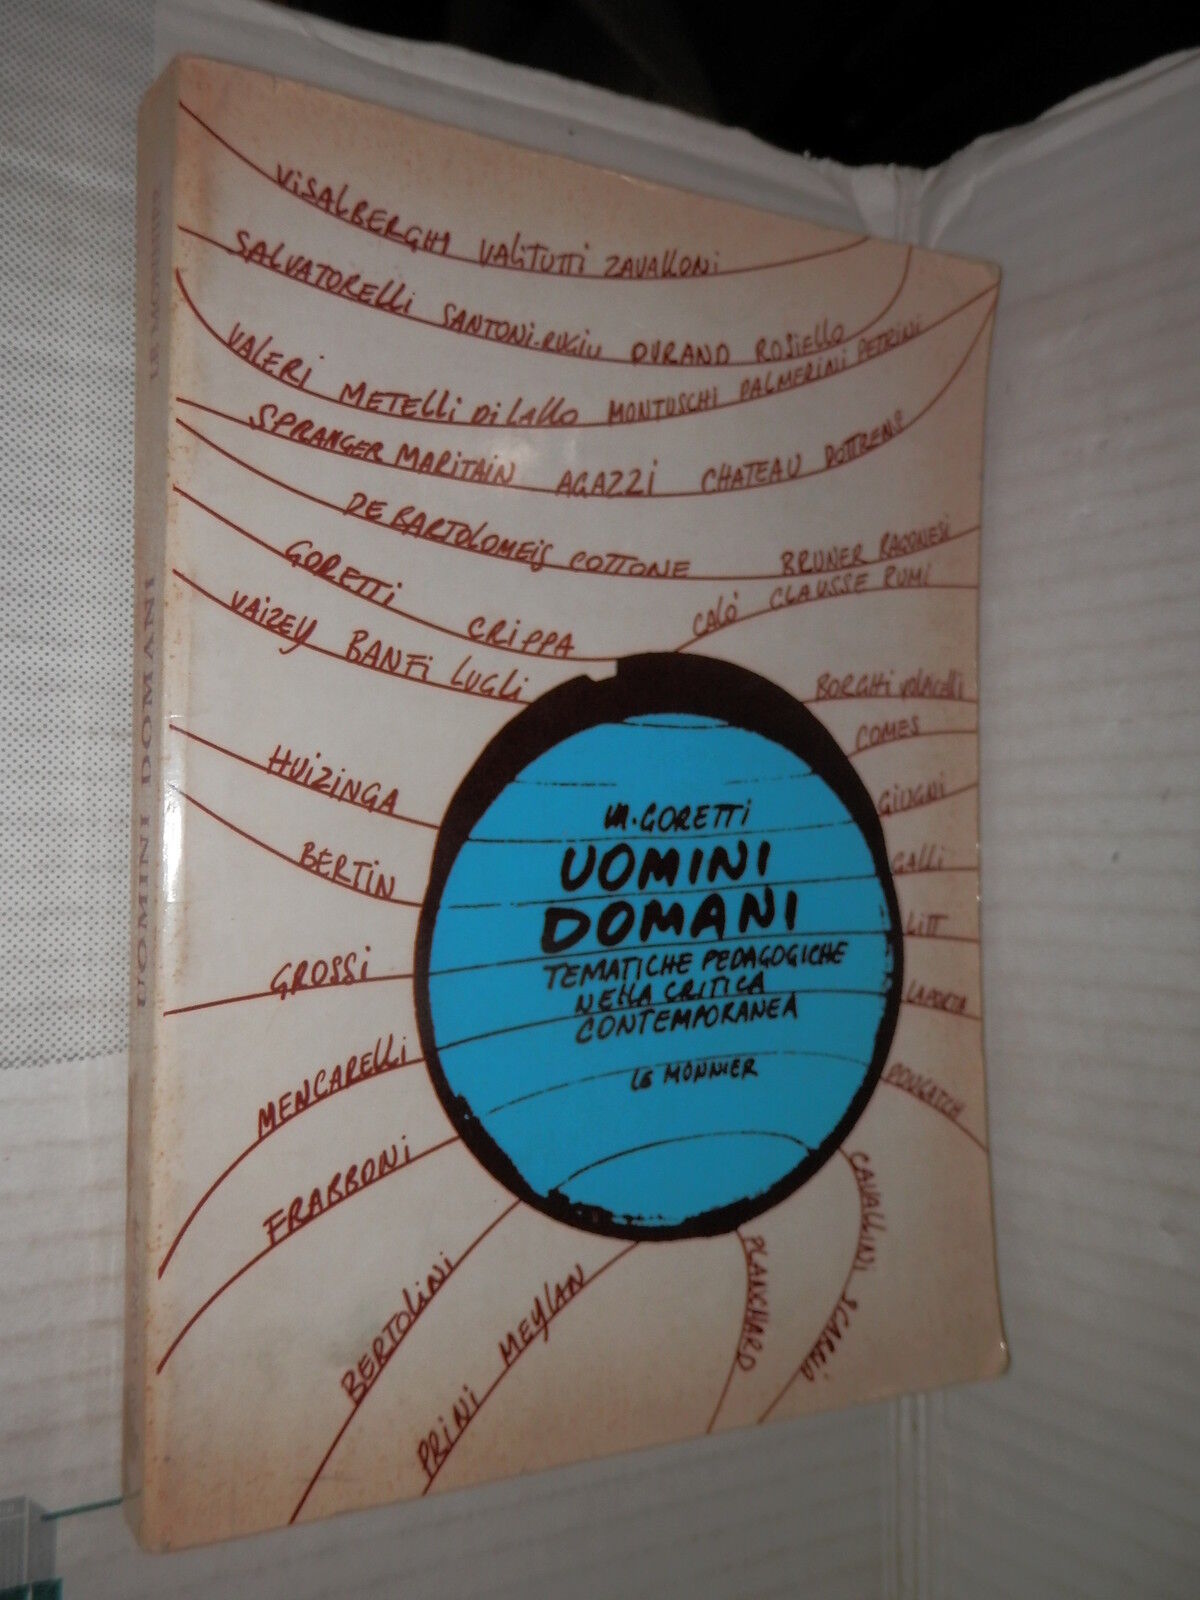 VISALBERGHI VALITUTTI ZAVALLONI
SALVATORELLI SANTONI-RUGIU DURAND ROSIELLO
VALERI METELLI DI LALLO MONTUSCHI PALMERINI PETRINI
SPRANGER MARITAIN AGAZZI CHATEAU DOTTRENS
DE BARTOLOMEIS COTTONE BRUNER RAGONESI
GORETTI CRIPPA CALÒ CLAUSSE RUMI
VAIZEY BANFI LUGLI
BORGHI VOLPICELLI
COMES
HUIZINGA
GIUGNI
BERTIN
GALLI
LITT
GROSSI
LAPORTA
MENCARELLI
POUGATCH
FRABBONI
CAVALLINI
BERTOLINI
PRINI MEYLAN
PLANCHARD
M. GORETTI
UOMINI
DOMANI
TEMATICHE PEDAGOGICHE
NELLA CRITICA
CONTEMPORANEA
LE MONNIER
UOMINI DOMANI
LE MONNIER